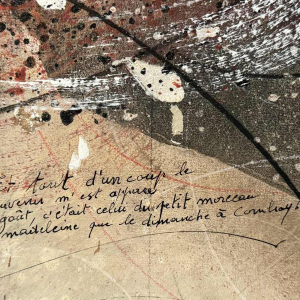 Et tout d'un coup le
uvenir m'est apparu
goût, c'était celui du petit morceau
madeleine que le dimanche à Combray